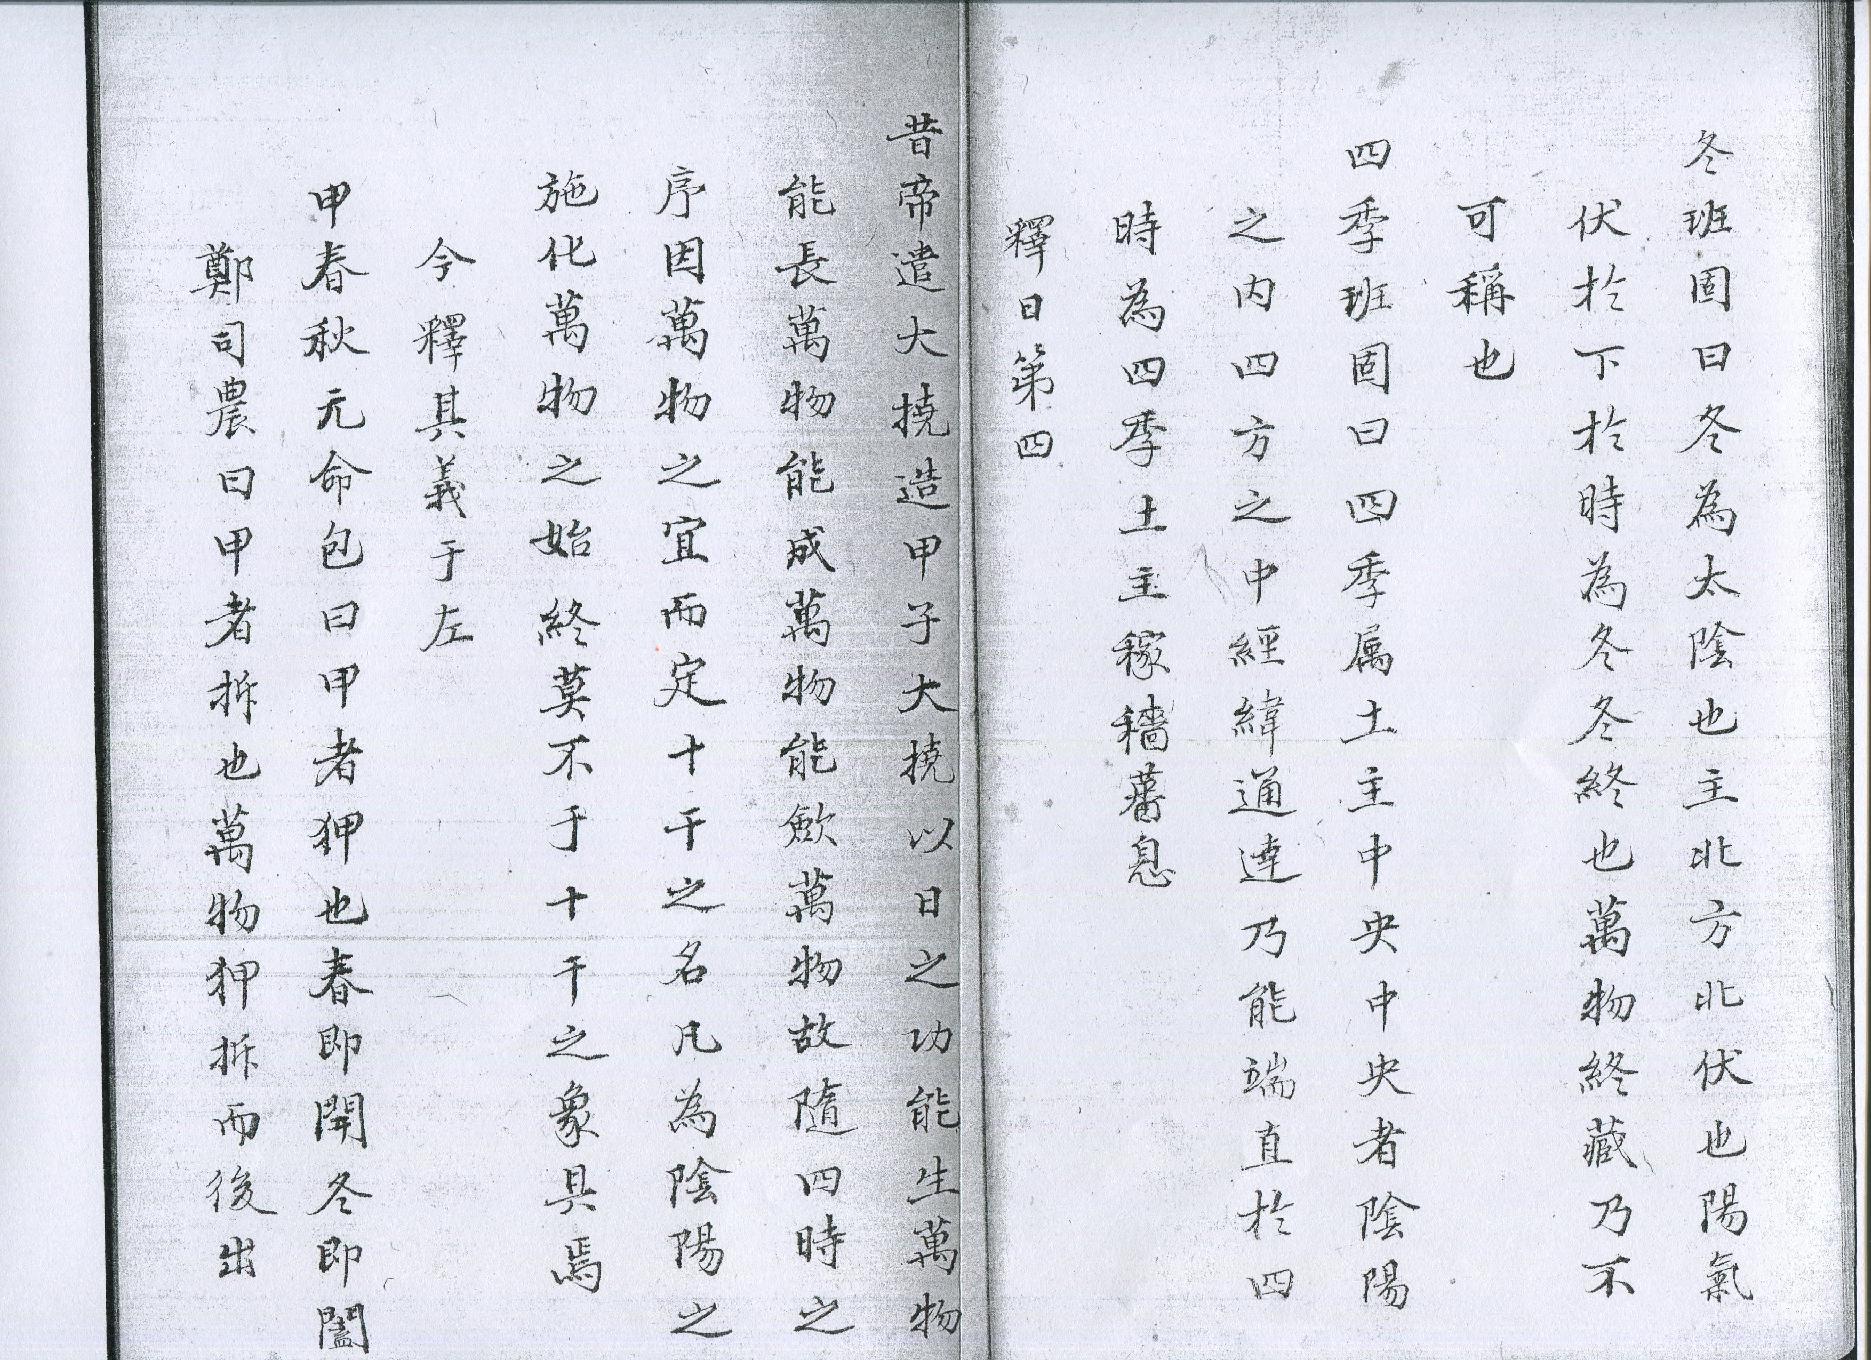 冬班固曰冬為太陰也主北方北伏也陽氣
伏於下於時為冬冬終也萬物終藏乃不
可稱也
四季班固曰四季属土主中央中央者陰陽
之内四方之中經緯通達乃能端直於四
時為四季土主稼穡蕃息
釋日第四
昔帝遣大撓造甲子大撓以日之功能生萬物
能長萬物能成萬物能歛萬物故隨四時之
序因萬物之宜而定十干之名凡為陰陽之
施化萬物之始終莫不于十干之象具焉
今釋其義于左
甲春秋元命包曰甲者狎也春即開冬即闔
鄭司農曰甲者拆也萬物狎拆而後出